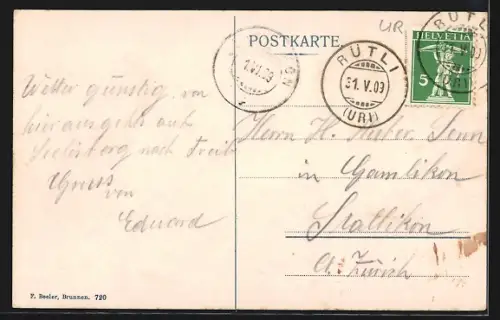 UR
POSTKARTE
HELVETIA
5
RÜTLI
31.V.09
(URI)
1.VI.09
Wetter günstig, von
hier aus gehts auf
Seelisberg nach Treib
Gruss
von
Eduard
Herrn H. Suter, Senn
in Gamlikon
Stallikon
Ct. Zürich
F. Beeler, Brunnen. 720